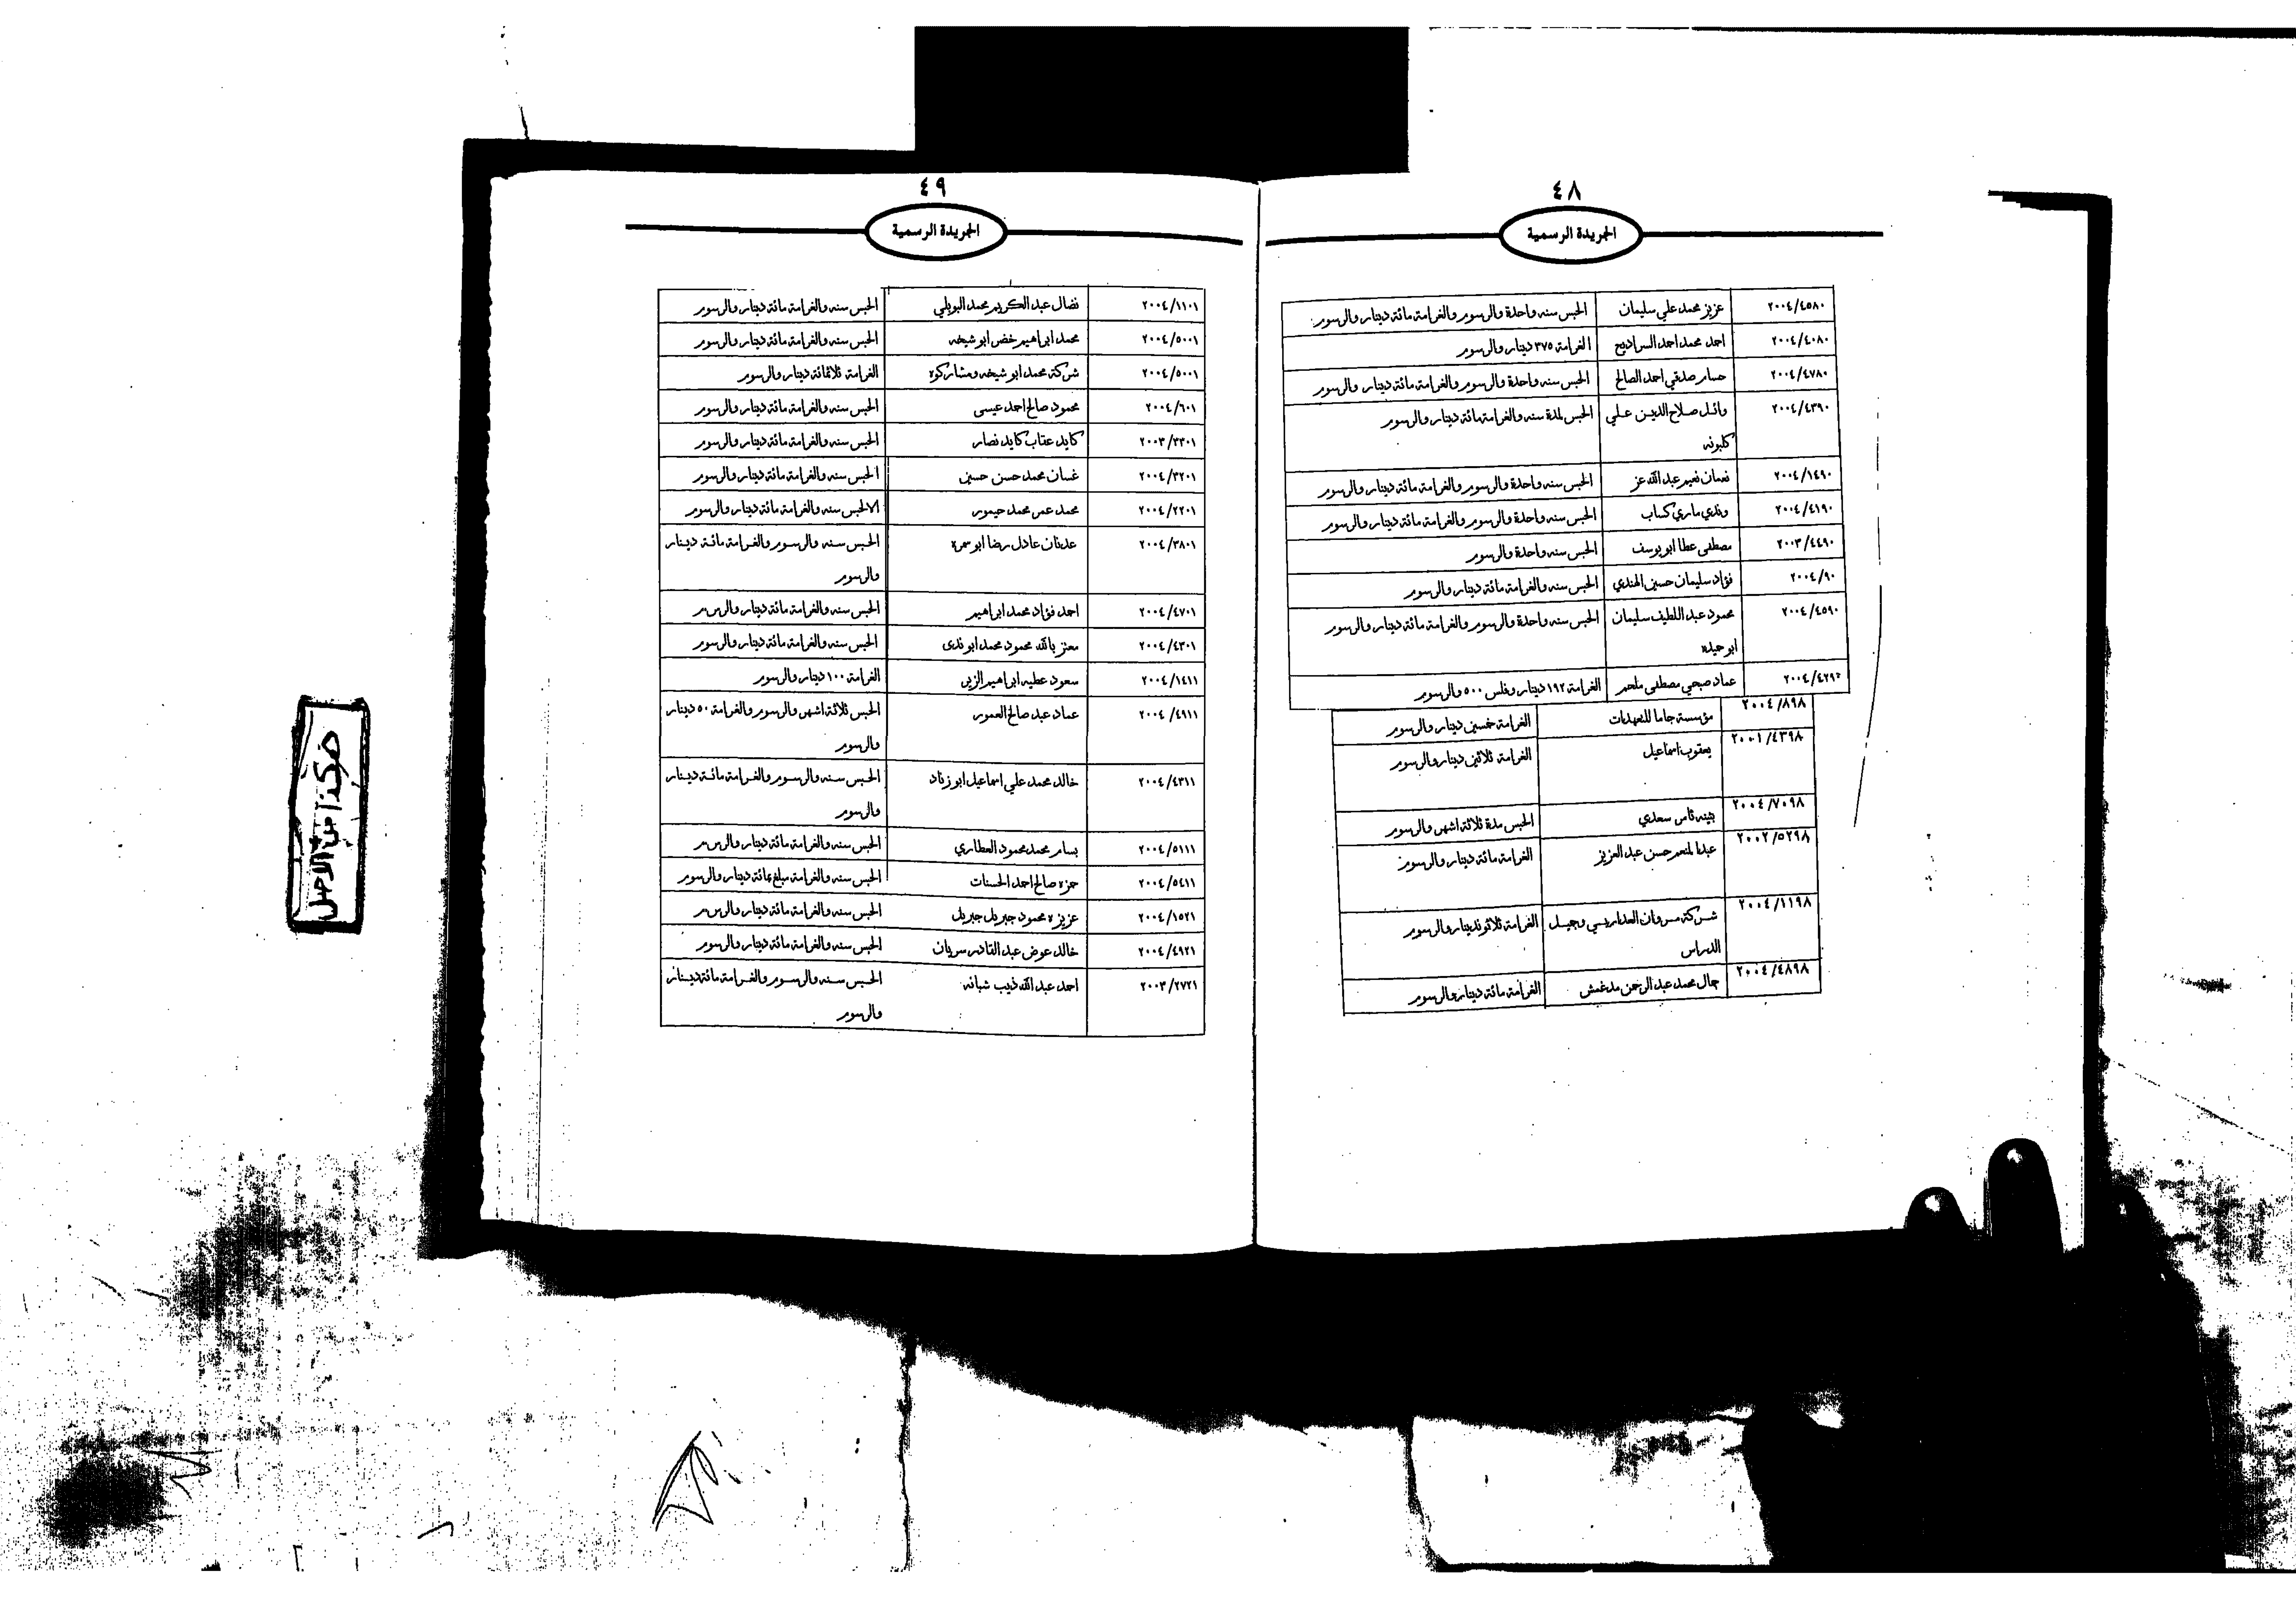 ٤٨
الجريدة الرسمية
٢٠٠٤/٤٥٨٠ عزيز محمد علي سليمان الحبس سنه واحدة والرسوم والغرامة مائة دينار والرسوم
٢٠٠٤/٤٠٨٠ احمد محمد احمد السراديح الغرامة ٣٧٥ دينار والرسوم
٢٠٠٤/٤٧٨٠ حسام صدقي احمد الصالح الحبس سنه واحدة والرسوم والغرامة مائة دينار والرسوم
٢٠٠٤/٤٣٩٠ وائل صلاح الدين علي الحبس لمدة سنه والغرامة مائة دينار والرسوم
كلبونه
٢٠٠٤/١٤٩٠ نعمان نعيم عبد الله عز الحبس سنه واحدة والرسوم والغرامة مائة دينار والرسوم
٢٠٠٤/٤١٩٠ وندي ماري كساب الحبس سنه واحدة والرسوم والغرامة مائة دينار والرسوم
٢٠٠٣/٤٤٩٠ مصطفى عطا ابو يوسف الحبس سنه واحدة والرسوم
٢٠٠٤/٩٠ فؤاد سليمان حسين الهندي الحبس سنه والغرامة مائة دينار والرسوم
٢٠٠٤/٤٥٩٠ محمود عبد اللطيف سليمان الحبس سنه واحدة والرسوم والغرامة مائة دينار والرسوم
ابو حيده
عماد صبحي مصطفى ملحم الغرامة ١٩٢ دينار وفلس ٥٠٠ والرسوم
٢٠٠٤/٨٩٨ مؤسسة جاما للتعهدات الغرامة خمسين دينار والرسوم
٢٠٠١/٤٣٩٨ يعقوب اسماعيل الغرامة ثلاثين دينار والرسوم
٢٠٠٤/٧٠٩٨ بثينه ثامر سعدي الحبس مدة ثلاثة اشهر والرسوم
٢٠٠٢/٥٢٩٨ عبد المنعم حسن عبد العزيز الغرامة مائة دينار والرسوم
٢٠٠٤/١١٩٨ شركة مروان المداريسي وجميل الغرامة ثلاثون دينار والرسوم
الدراس
٢٠٠٤/٤٨٩٨ جمال محمد عبد الرحمن مدغمش الغرامة مائة دينار والرسوم
٤٩
الجريدة الرسمية
٢٠٠٤/١١٠١ نضال عبد الكريم محمد البويلي الحبس سنه والغرامة مائة دينار والرسوم
٢٠٠٤/٥٠٠١ محمد ابراهيم خضر ابو شيخه الحبس سنه والغرامة مائة دينار والرسوم
٢٠٠٤/٥٠٠١ شركة محمد ابو شيخه ومشاركوه الغرامة ثلاثمائة دينار والرسوم
٢٠٠٤/٦٠١ محمود صالح احمد عيسى الحبس سنه والغرامة مائة دينار والرسوم
٢٠٠٣/٣٣٠١ كايد عقاب كايد نصار الحبس سنه والغرامة مائة دينار والرسوم
٢٠٠٤/٣٢٠١ غسان محمد حسن حسين الحبس سنه والغرامة مائة دينار والرسوم
٢٠٠٤/٢٢٠١ محمد عمر محمد حيمور الالحبس سنه والغرامة مائة دينار والرسوم
٢٠٠٤/٣٨٠١ عدنان عادل رضا ابو سمرة الحبس سنه والرسوم والغرامة مائة دينار
والرسوم
٢٠٠٤/٤٧٠١ احمد فؤاد محمد ابراهيم الحبس سنه والغرامة مائة دينار والرسوم
٢٠٠٤/٤٣٠١ معتز بالله محمود محمد ابو ندى الحبس سنه والغرامة مائة دينار والرسوم
٢٠٠٤/١٤١١ سعود عطيه ابراهيم الزير الغرامة ١٠٠ دينار والرسوم
٢٠٠٤/٤٩١١ عماد عبد صالح العمور الحبس ثلاثة اشهر والرسوم والغرامة ٥٠ دينار
والرسوم
٢٠٠٤/٤٣١١ خالد محمد علي اسماعيل ابو زناد الحبس سنه والرسوم والغرامة مائة دينار
والرسوم
٢٠٠٤/٥١١١ بسام محمد محمود العطاري الحبس سنه والغرامة مائة دينار والرسوم
٢٠٠٤/٥٤١١ حمزه صالح احمد الحسنات الحبس سنه والغرامة مبلغ مائة دينار والرسوم
٢٠٠٤/١٥٢١ عزيزه محمود جبريل جبريل الحبس سنه والغرامة مائة دينار والرسوم
٢٠٠٤/٤٩٢١ خالد عوض عبد القادر سريان الحبس سنه والغرامة مائة دينار والرسوم
٢٠٠٣/٢٧٢١ احمد عبد الله ذيب شبانه الحبس سنه والرسوم والغرامة مائة دينار
والرسوم